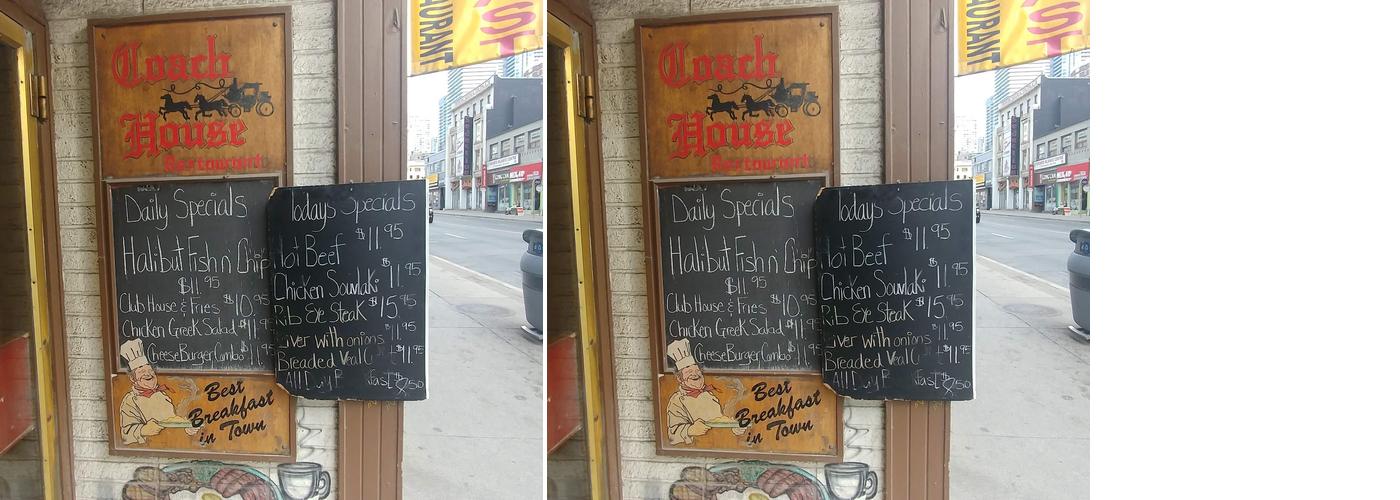 Coach
House
Restaurant
Daily Specials
Halibut Fish n' Chip
$11.95
Club House & Fries $10.95
Chicken Greek Salad $11.95
Cheese Burger Combo 11.95
Best
Breakfast
in Town
Todays Specials
$11.95
Hot Beef
Chicken Souvlaki $11.95
Rib Eye Steak $15.95
Liver with onions $11.95
Breaded Veal 11.95
All
URANT
ST
Coach
House
Restaurant
Daily Specials
Halibut Fish n' Chip
$11.95
Club House & Fries $10.95
Chicken Greek Salad $11.95
Cheese Burger Combo 11.95
Best
Breakfast
in Town
Todays Specials
$11.95
Hot Beef
Chicken Souvlaki $11.95
Rib Eye Steak $15.95
Liver with onions $11.95
Breaded Veal 11.95
All
URANT
ST